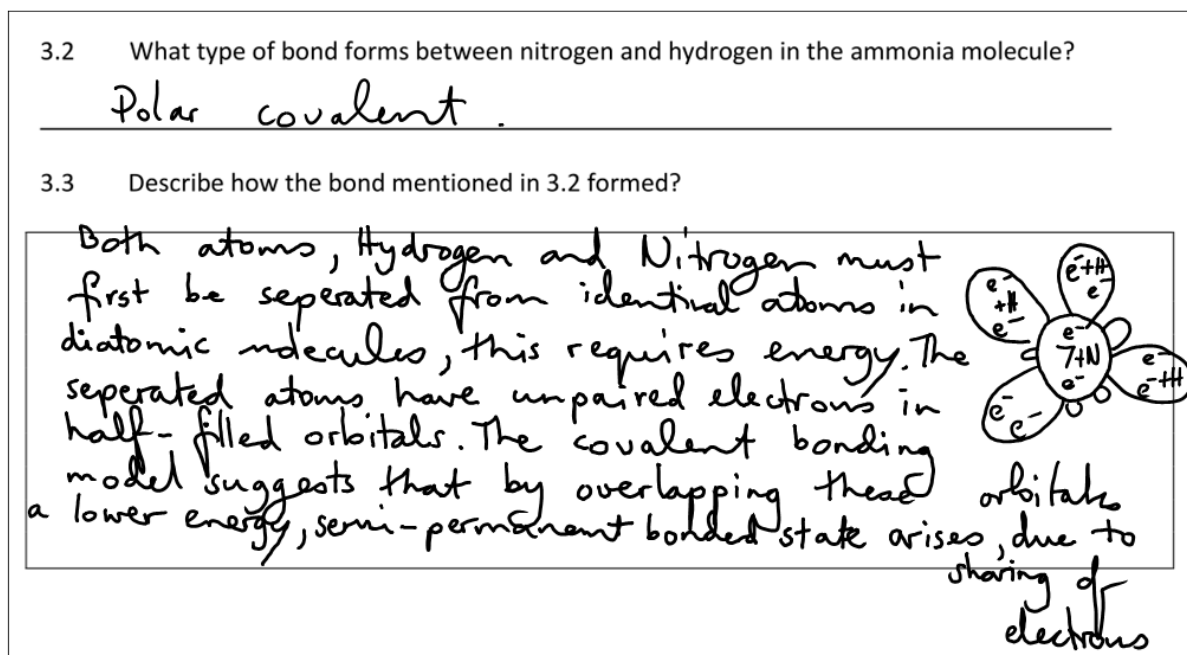 3.2 What type of bond forms between nitrogen and hydrogen in the ammonia molecule?
Polar covalent.
3.3 Describe how the bond mentioned in 3.2 formed?
Both atoms, Hydrogen and Nitrogen must
first be seperated from identical atoms in
diatomic molecules, this requires energy. The
seperated atoms have unpaired electrons in
half-filled orbitals. The covalent bonding
model suggests that by overlapping these orbitals
a lower energy, semi-permanent bonded state arises, due to
sharing of
electrons
e- +H e-
e- +H e-
e- 7+N e-
e- e- +H
e- e-